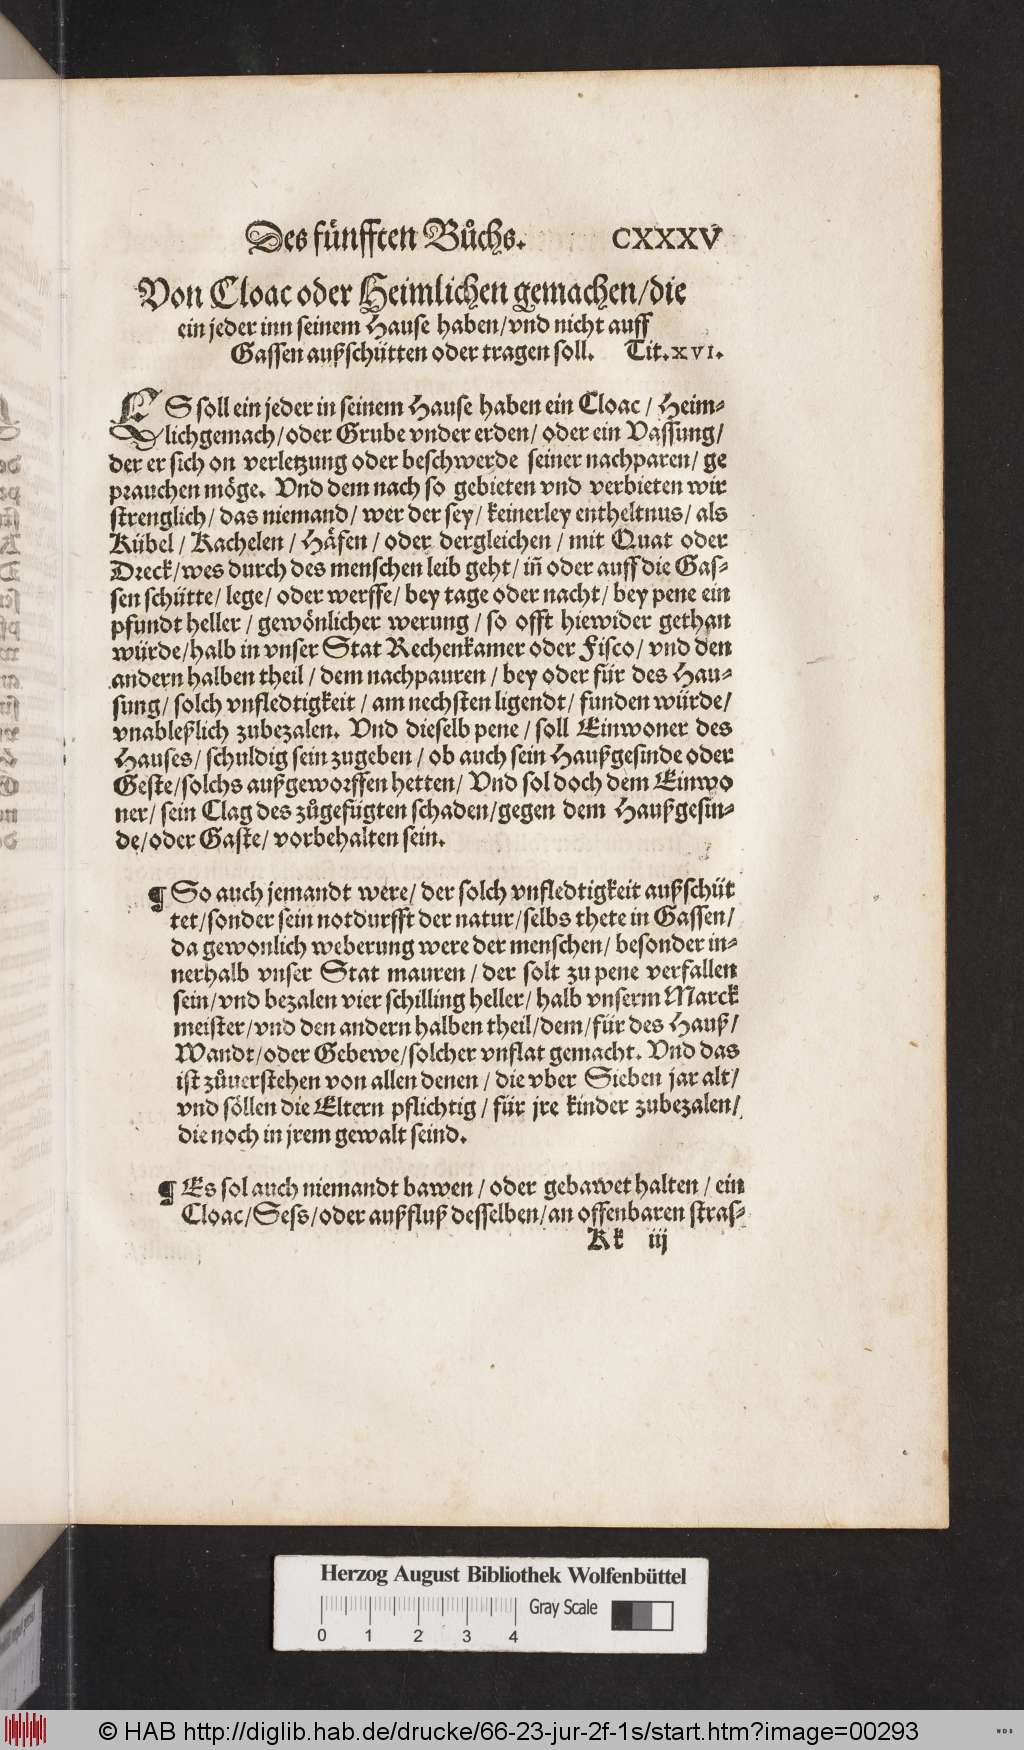 Des fünfften Bůchs. CXXXV
Von Cloac oder Heimlichen gemachen/die
ein jeder inn seinem Hause haben/vnd nicht auff
Gassen außschütten oder tragen soll. Tit.xvi.
ES soll ein jeder in seinem Hause haben ein Cloac / Heim-
lichgemach/oder Grube vnder erden/ oder ein Vassung/
der er sich on verletzung oder beschwerde seiner nachparen/ ge
prauchen möge. Vnd dem nach so gebieten vnd verbieten wir
strenglich/ das niemand/ wer der sey/ keinerley entheltnus/ als
Kübel / Kachelen / Häfen / oder dergleichen / mit Quat oder
Dreck/wes durch des menschen leib geht/ iñ oder auff die Gas-
sen schütte/ lege/ oder werffe/ bey tage oder nacht/ bey pene ein
pfundt heller / gewönlicher werung / so offt hiewider gethan
würde/halb in vnser Stat Rechenkamer oder Fisco/ vnd den
andern halben theil / dem nachpauren / bey oder für des Hau-
sung/ solch vnfledtigkeit / am nechsten ligendt/ funden würde/
vnableßlich zubezalen. Vnd dieselb pene / soll Einwoner des
Hauses/ schuldig sein zugeben / ob auch sein Haußgesinde oder
Geste/solchs außgeworffen hetten/ Vnd sol doch dem Einwo
ner/ sein Clag des zůgefügten schaden/gegen dem Haußgesin-
de/oder Gaste/ vorbehalten sein.
¶ So auch jemandt were/ der solch vnfledtigkeit außschüt
tet/sonder sein notdurfft der natur/selbs thete in Gassen/
da gewonlich weberung were der menschen/ besonder in-
nerhalb vnser Stat mauren / der solt zu pene verfallen
sein/vnd bezalen vier schilling heller/ halb vnserm Marck
meister/vnd den andern halben theil/dem/für des Hauß/
Wandt/oder Gebewe/solcher vnflat gemacht. Vnd das
ist zůuerstehen von allen denen / die vber Sieben jar alt/
vnd söllen die Eltern pflichtig / für jre kinder zubezalen/
die noch in jrem gewalt seind.
¶ Es sol auch niemandt bawen / oder gebawet halten / ein
Cloac/Sess/oder außfluß desselben/an offenbaren stras-
Kk iij
Herzog August Bibliothek Wolfenbüttel
Gray Scale
0 1 2 3 4
© HAB http://diglib.hab.de/drucke/66-23-jur-2f-1s/start.htm?image=00293